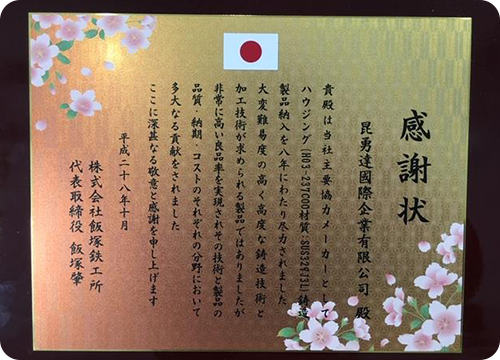 感謝状
昆勇達國際企業有限公司 殿
貴殿は当社主要協力メーカーとして
ハウジング(H03-237C00材質:SUS329J3L)鋳造
製品納入を八年にわたり尽力されました
大変難易度の高く高度な鋳造技術と
加工技術が求められる製品ではありましたが
非常に高い良品率を実現されその技術と製品の
品質・納期・コストのそれぞれの分野において
多大なる貢献をされました
ここに深甚なる敬意と感謝を申し上げます
平成二十八年十月
株式会社飯塚鉄工所
代表取締役 飯塚肇